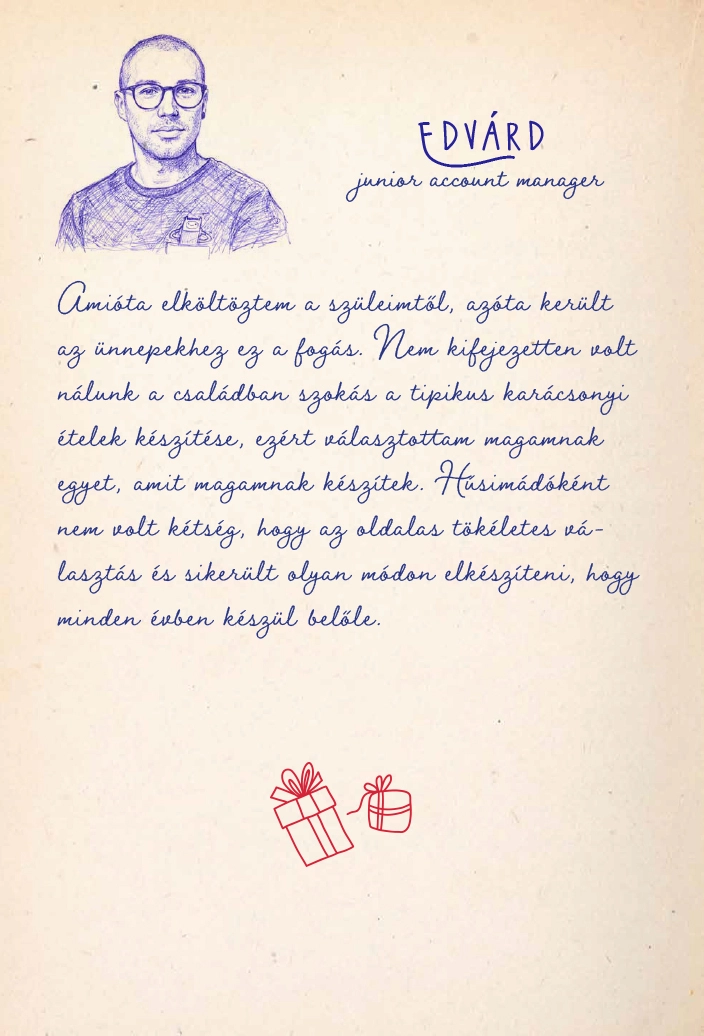 EDVÁRD
junior account manager
Amióta elköltöztem a szüleimtől, azóta került
az ünnepekhez ez a fogás. Nem kifejezetten volt
nálunk a családban szokás a tipikus karácsonyi
ételek készítése, ezért választottam magamnak
egyet, amit magamnak készítek. Húsimádóként
nem volt kétség, hogy az oldalas tökéletes vá-
lasztás és sikerült olyan módon elkészíteni, hogy
minden évben készül belőle.